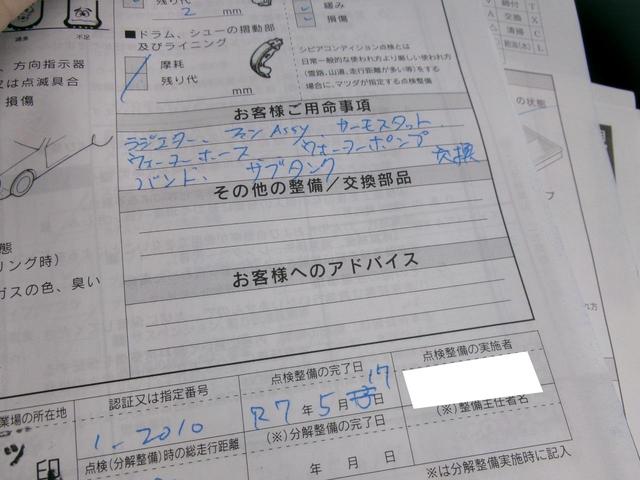 過多
不足
残り代
2 mm
緩み
損傷
締付 T
A 交換 X
清掃 C
給油(水) L
、方向指示器
又は点滅具合
損傷
■ドラム、シューの摺動部
及びライニング
摩耗
残り代
mm
シビアコンディション点検とは
日常一般的な使われ方より厳しい使われ方
(雪路、山道、走行距離が多い等)をする
場合に、マツダが指定する点検整備
お客様ご用命事項
ラジエター、ファンAssy、サーモスタット
ウォーターホース ウォーターポンプ
バンド、サブタンク 交換
その他の整備/交換部品
お客様へのアドバイス
の状態
態
リング時)
ガスの色、臭い
業場の所在地
認証又は指定番号
1-2010
点検(分解整備)時の総走行距離
点検整備の完了日
R7年5月17日
(※)分解整備の完了日
年 月 日
点検整備の実施者
(※)整備主任者名
※は分解整備実施時に記入
ツ
印